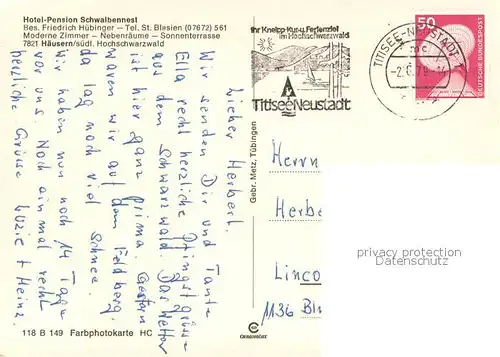 Hotel-Pension Schwalbennest
Bes. Friedrich Hübinger – Tel. St. Blasien (07672) 561
Moderne Zimmer – Nebenräume – Sonnenterrasse
7821 Häusern/südl. Hochschwarzwald
Ihr Kneipp-Kur-u. Ferienziel
im Hochschwarzwald
Titisee Neustadt
TITISEE-NEUSTADT 1
50
DEUTSCHE BUNDESPOST
Lieber Herbert.
Wir senden Dir und Tante
Ella recht herzliche Pfingstgrüsse
aus dem Schwarzwald. Das Wetter
ist hier ganz prima. Gestern
waren wir auf dem Feldberg.
da lag noch viel Schnee.
Wir haben nun noch 14 Tage
vor uns. Noch einmal recht
herzliche Grüsse Luzie + Heinz.
Gebr. Metz, Tübingen
Herrn
Herbe
Linco
1136 Bl
privacy protection
Datenschutz
118 B 149 Farbphotokarte HC